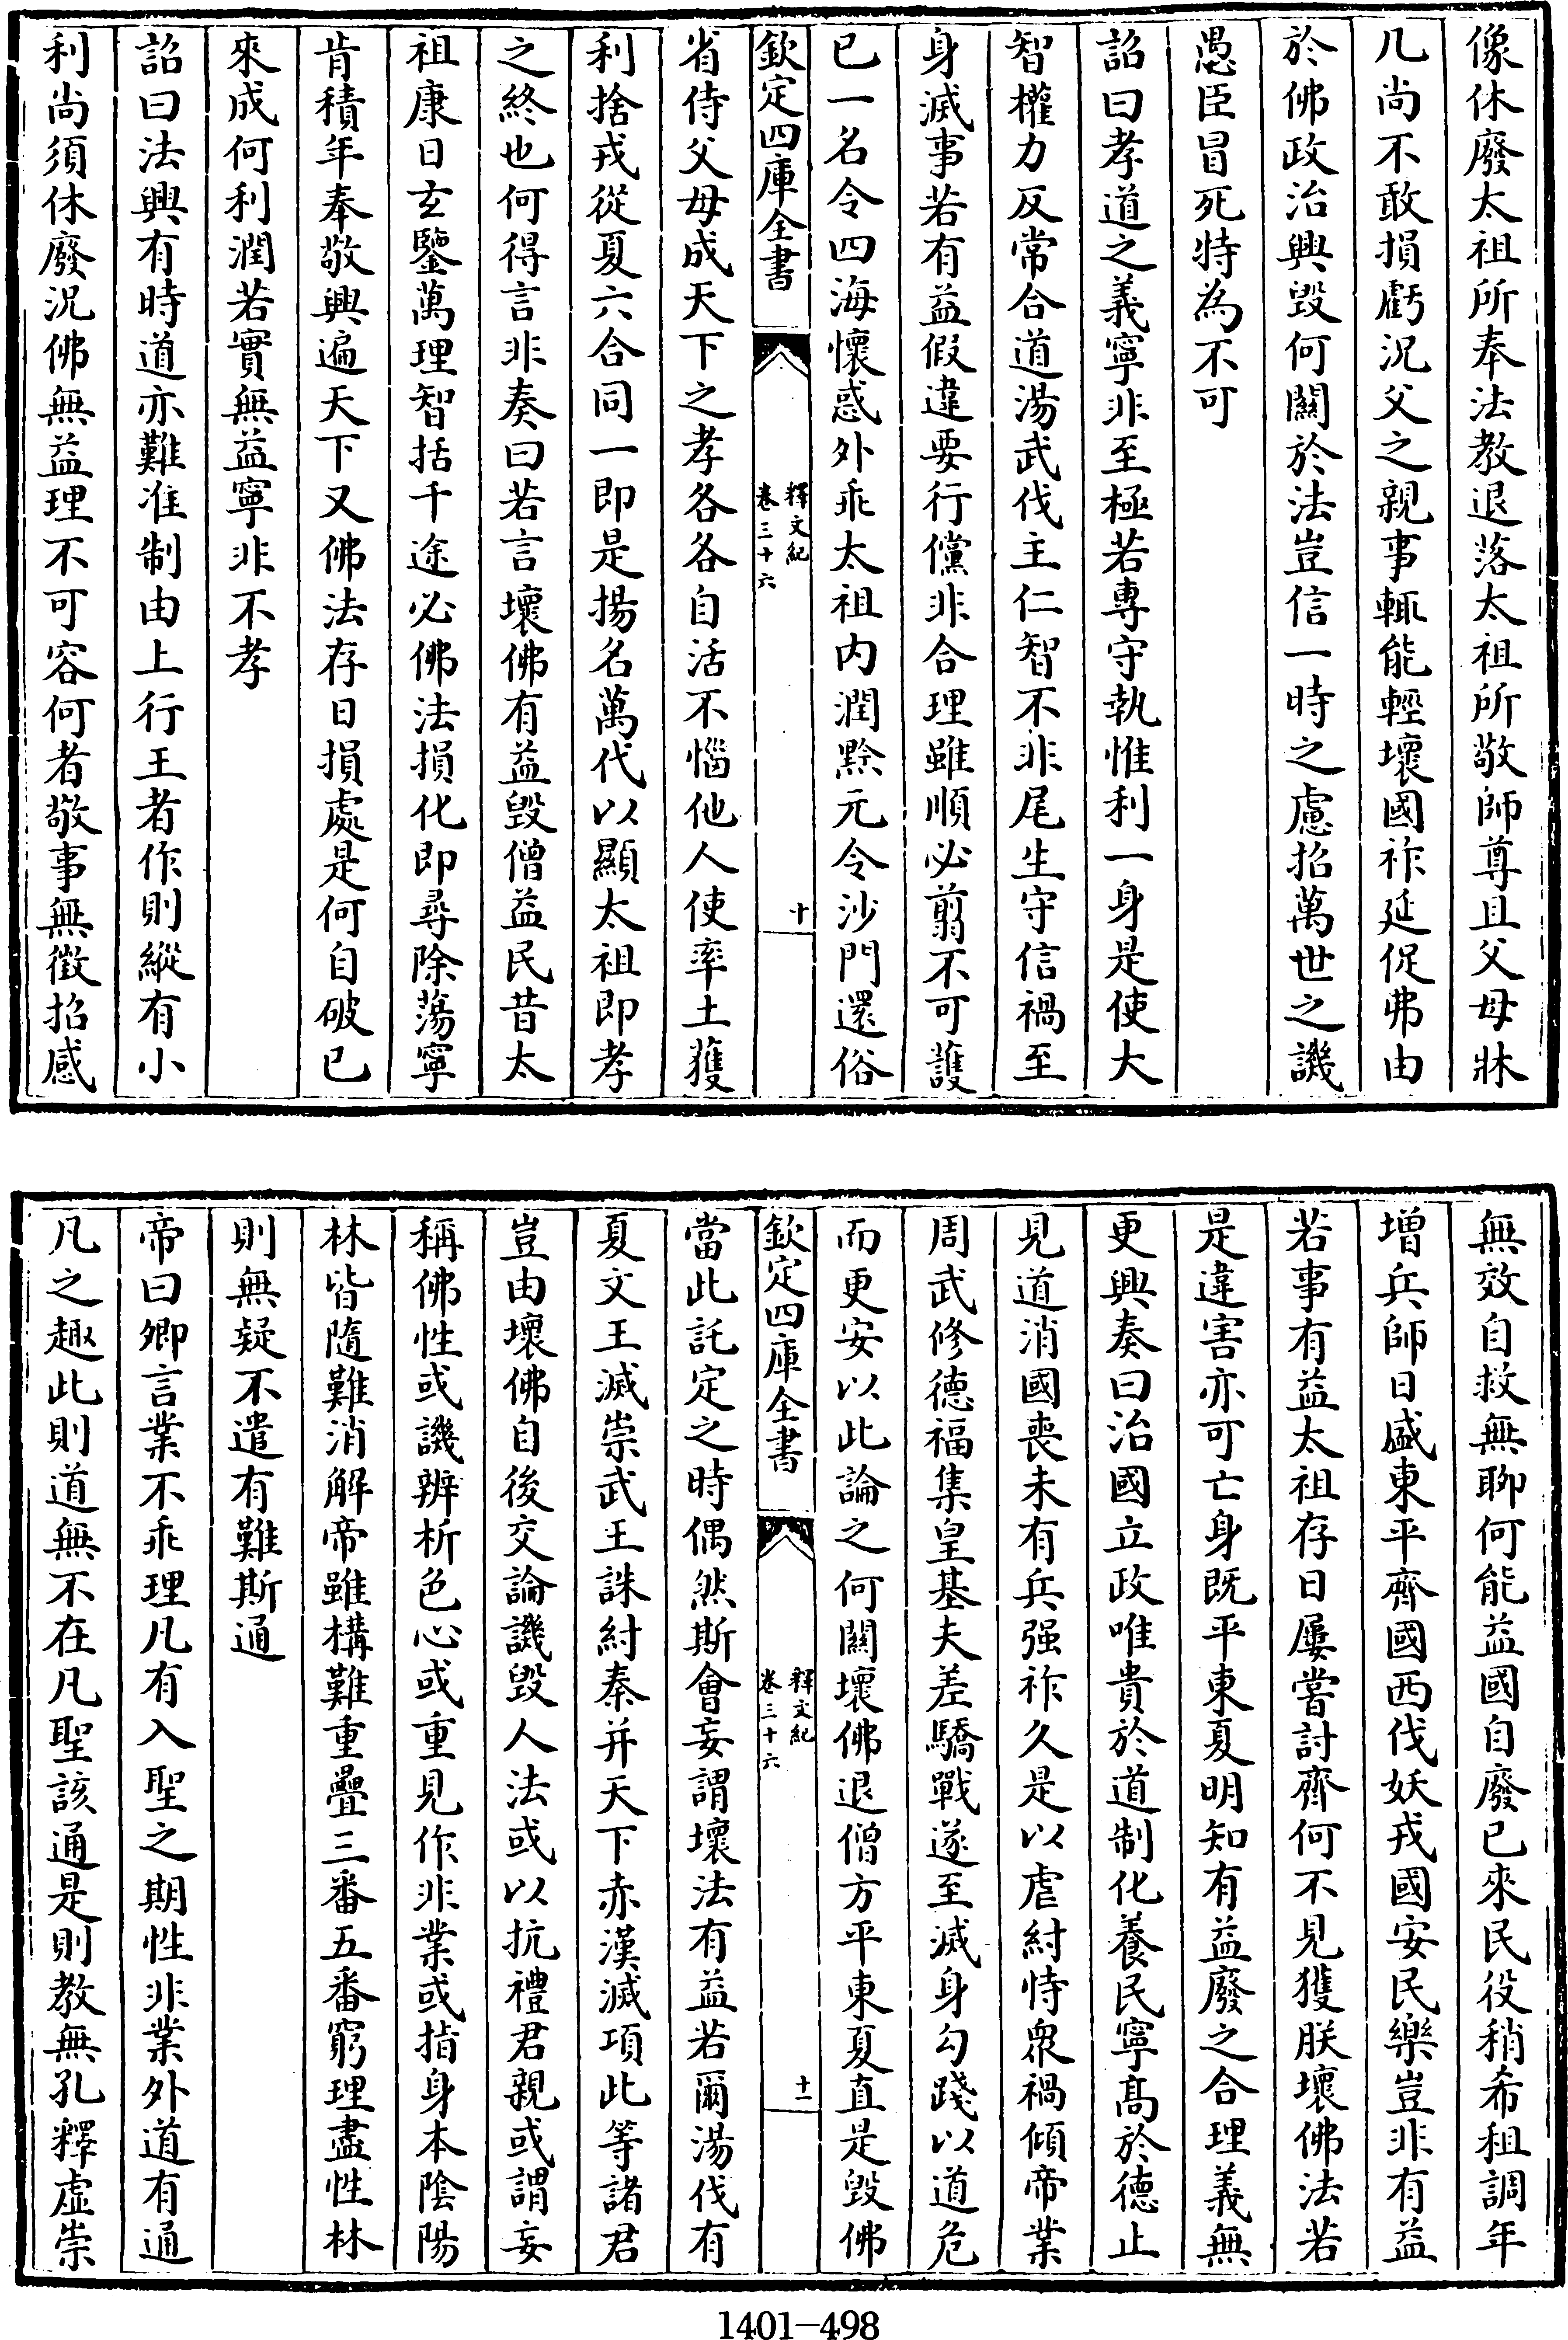 像休廢太祖所奉法教退落太祖所敬師尊且父母牀
几尚不敢損虧況父之親事輒能輕壞國祚延促弗由
於佛政治興毀何關於法豈信一時之慮招萬世之譏
愚臣冒死特為不可
詔曰孝道之義寧非至極若專守執惟利一身是使大
智權力反常合道湯武伐主仁智不非尾生守信禍至
身滅事若有益假違要行儻非合理雖順必翦不可護
已一名令四海懷惑外乖太祖內潤黔元令沙門還俗
欽定四庫全書
釋文紀
卷三十六
十
省侍父母成天下之孝各各自活不惱他人使率土獲
利捨戎從夏六合同一即是揚名萬代以顯太祖即孝
之終也何得言非奏曰若言壞佛有益毀僧益民昔太
祖康日玄鑒萬理智括千途必佛法損化即尋除蕩寧
肯積年奉敬興遍天下又佛法存日損處是何自破已
來成何利潤若實無益寧非不孝
詔曰法興有時道亦難准制由上行王者作則縱有小
利尚須休廢況佛無益理不可容何者敬事無徵招感
無效自救無聊何能益國自廢已來民役稍希租調年
增兵師日盛東平齊國西伐妖戎國安民樂豈非有益
若事有益太祖存日屢嘗討齊何不見獲朕壞佛法若
是違害亦可亡身既平東夏明知有益廢之合理義無
更興奏曰治國立政唯貴於道制化養民寧高於德止
見道消國喪未有兵强祚久是以虐紂恃衆禍傾帝業
周武修德福集皇基夫差驕戰遂至滅身勾踐以道危
而更安以此論之何關壞佛退僧方平東夏直是毀佛
欽定四庫全書
釋文紀
卷三十六
十一
當此託定之時偶然斯會妄謂壞法有益若爾湯伐有
夏文王滅崇武王誅紂秦并天下赤漢滅項此等諸君
豈由壞佛自後交論譏毀人法或以抗禮君親或謂妄
稱佛性或譏辨析色心或重見作非業或指身本陰陽
林皆隨難消解帝雖構難重疊三番五番窮理盡性林
則無疑不遣有難斯通
帝曰卿言業不乖理凡有入聖之期性非業外道有通
凡之趣此則道無不在凡聖該通是則教無孔釋虛崇
1401-498